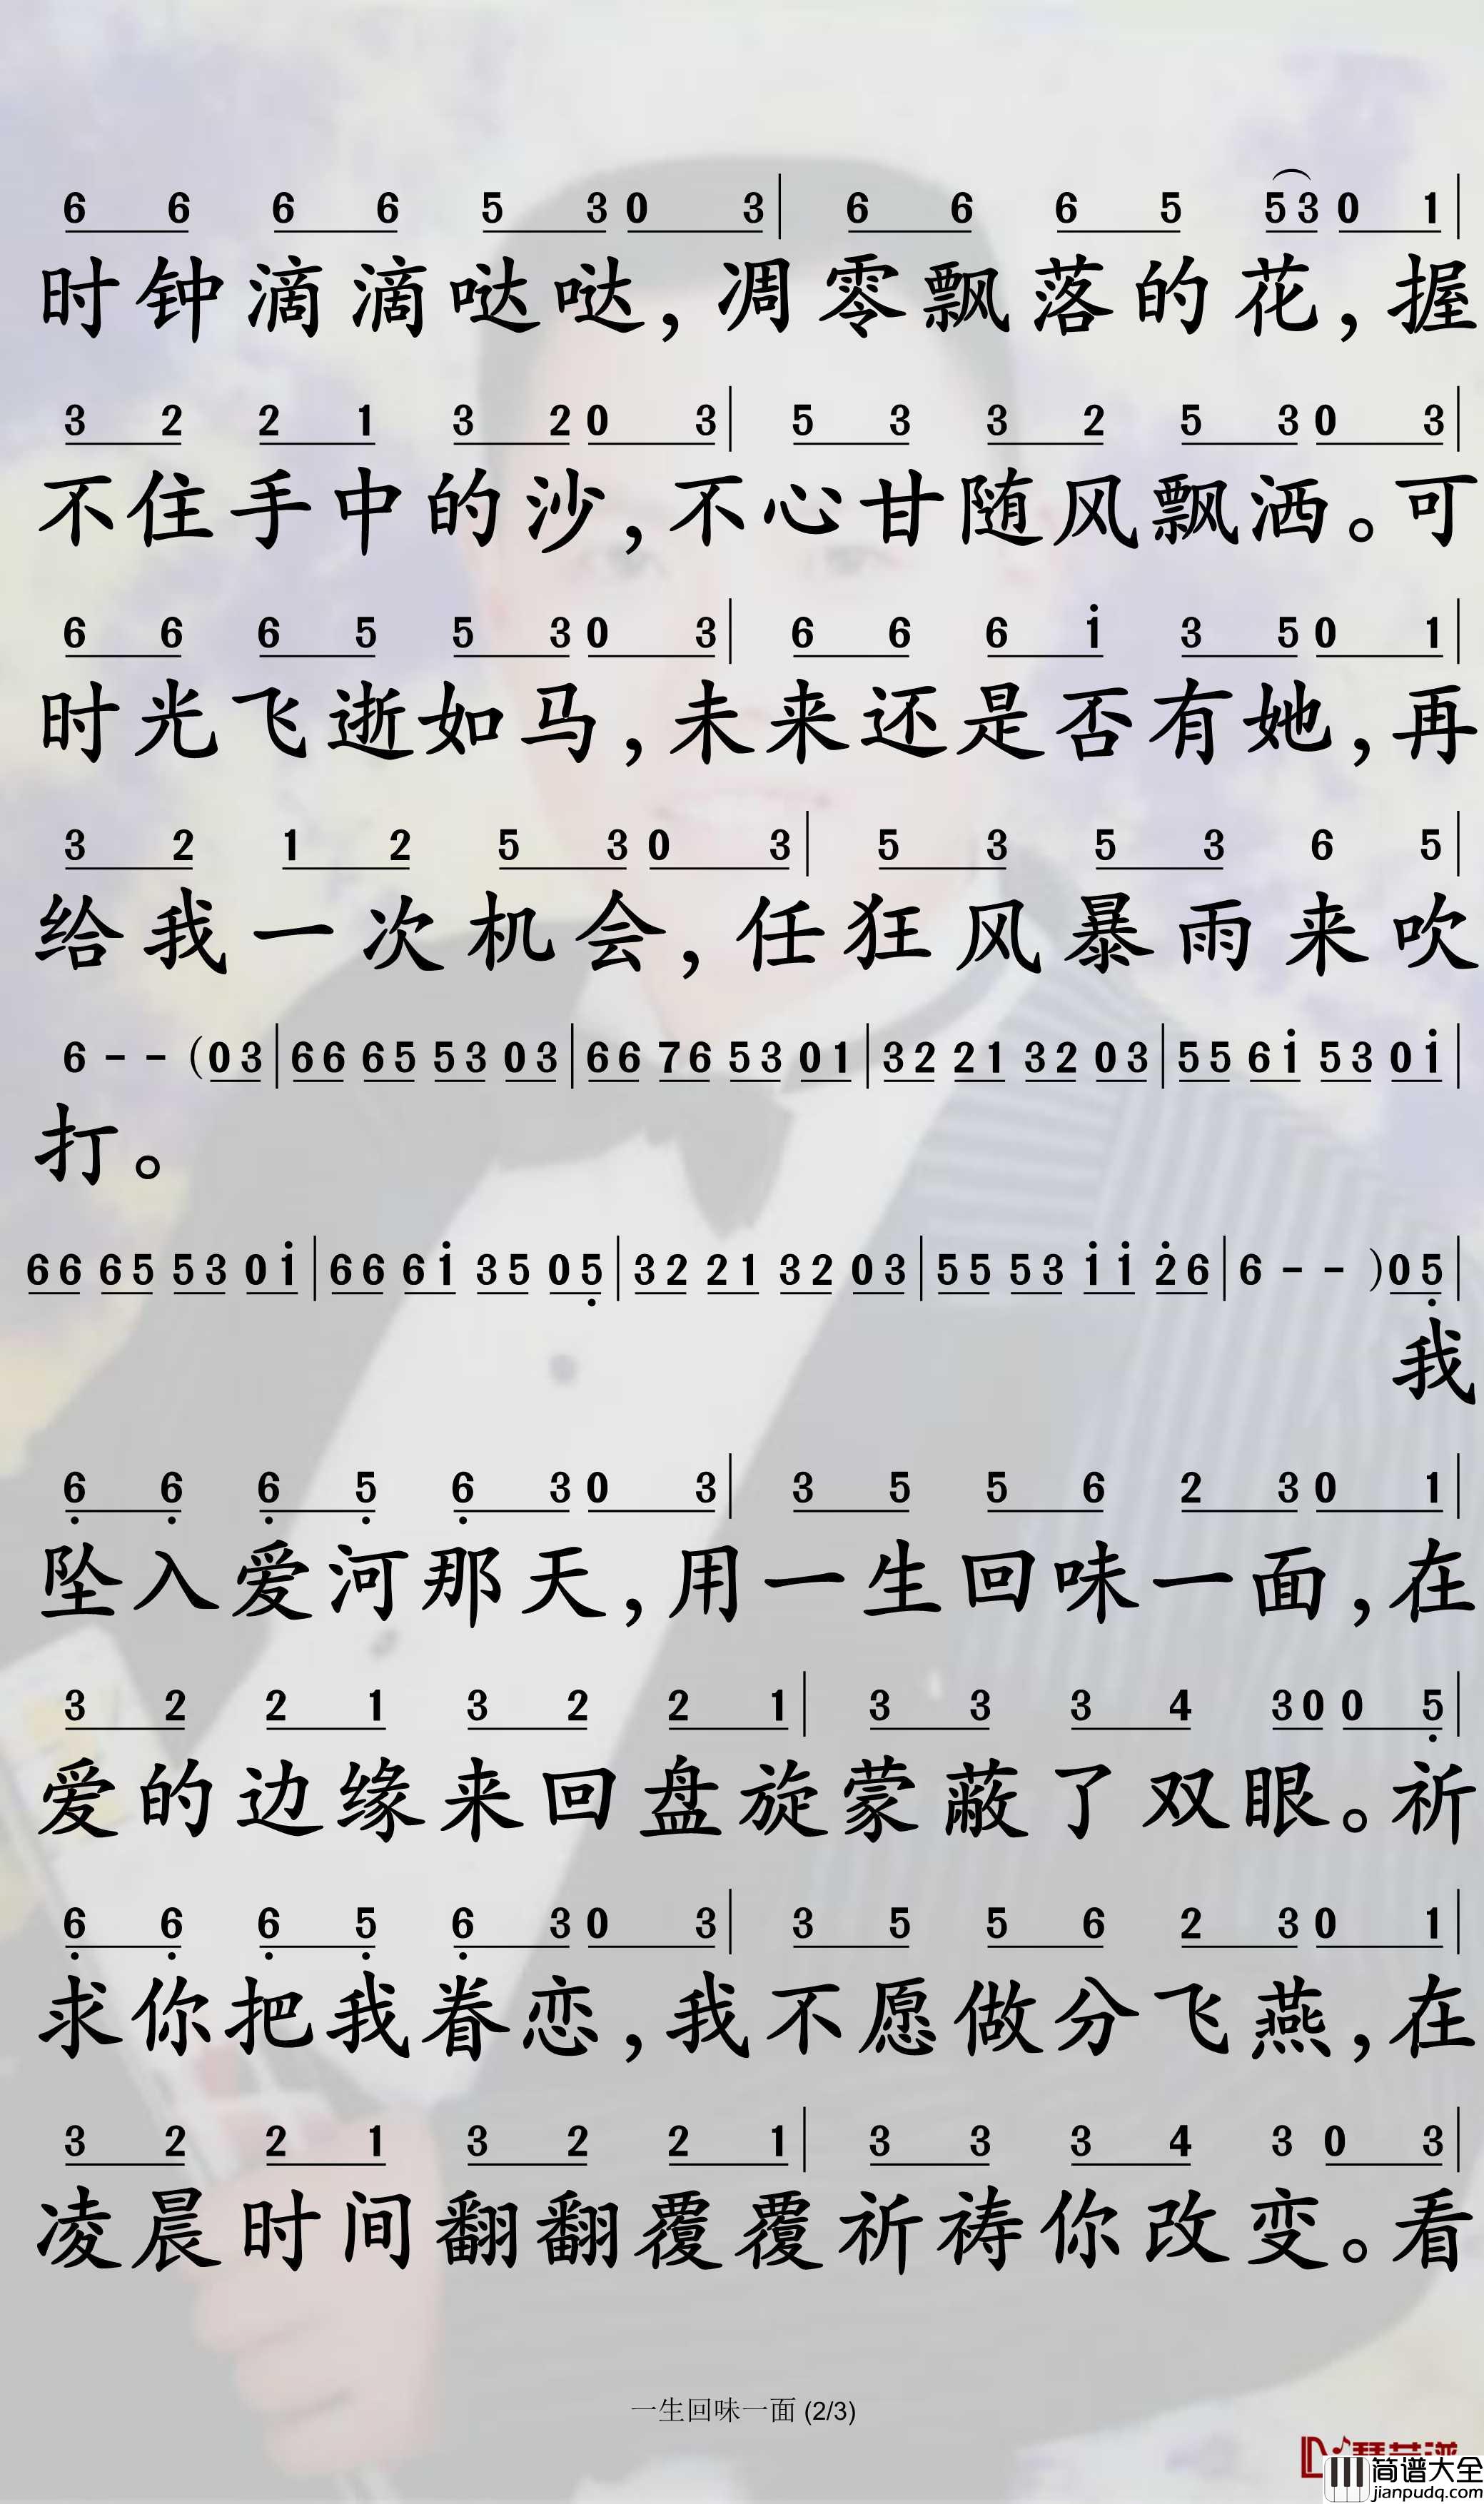 6 6 6 6 5 3 0 3 | 6 6 6 5 5 3 0 1 |
时钟滴滴哒哒,凋零飘落的花,握
3 2 2 1 3 2 0 3 | 5 3 3 2 5 3 0 3 |
不住手中的沙,不心甘随风飘洒。可
6 6 6 5 5 3 0 3 | 6 6 6 i 3 5 0 1 |
时光飞逝如马,未来还是否有她,再
3 2 1 2 5 3 0 3 | 5 3 5 3 6 5 |
给我一次机会,任狂风暴雨来吹
6 - - (0 3 | 6 6 6 5 5 3 0 3 | 6 6 7 6 5 3 0 1 | 3 2 2 1 3 2 0 3 | 5 5 6 i 5 3 0 i |
打。
6 6 6 5 5 3 0 i | 6 6 6 i 3 5 0 5̣ | 3 2 2 1 3 2 0 3 | 5 5 5 3 i i 2̇ 6 | 6 - - ) 0 5̣ |
我
6̣ 6̣ 6̣ 5̣ 6̣ 3 0 3 | 3 5 5 6 2 3 0 1 |
坠入爱河那天,用一生回味一面,在
3 2 2 1 3 2 2 1 | 3 3 3 4 3 0 0 5̣ |
爱的边缘来回盘旋蒙蔽了双眼。祈
6̣ 6̣ 6̣ 5̣ 6̣ 3 0 3 | 3 5 5 6 2 3 0 1 |
求你把我眷恋,我不愿做分飞燕,在
3 2 2 1 3 2 2 1 | 3 3 3 4 3 0 3 |
凌晨时间翻翻覆覆祈祷你改变。看
一生回味一面 (2/3)
简谱大全
jianpudq.com